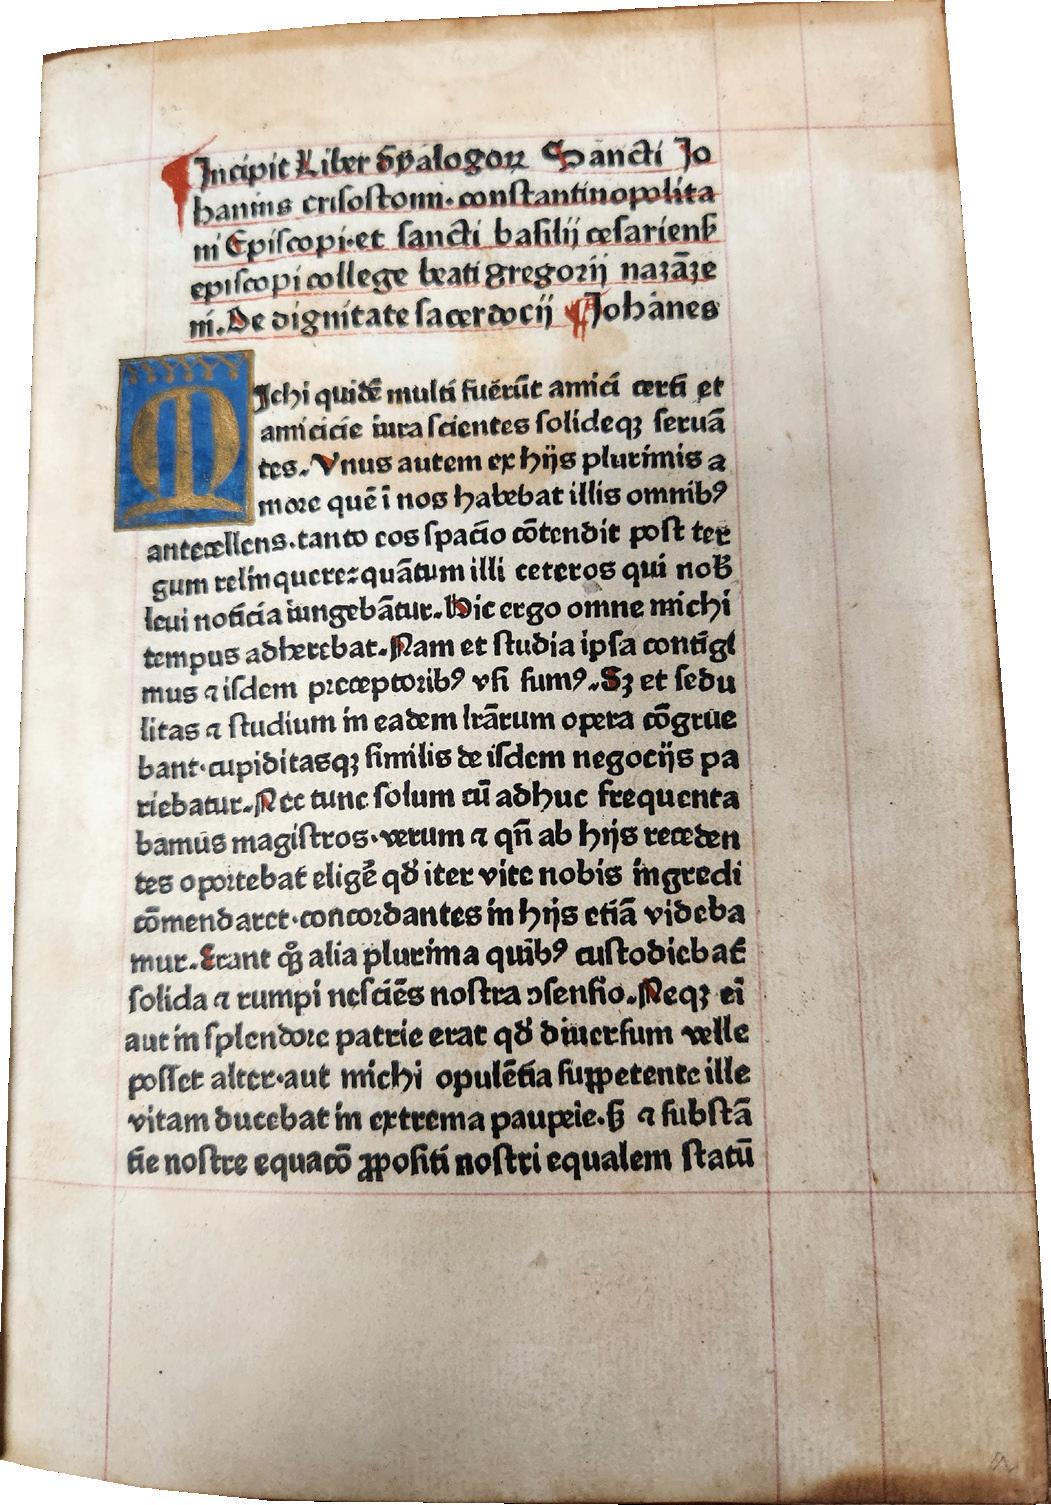 Incipit Liber dyalogoꝝ Sancti Jo
hannis crisostomi· constantinopolita
ni Episcopi·et sancti basilij cesarienẜ
episcopi college beati gregorij nazāze
ni. De dignitate sacerdocij Johānes
MJchi quidē multi fuērūt amici certi et
amicicie iura scientes solideqꝫ seruā
tes. Vnus autem ex hijs plurimis a
more quē ī nos habebat illis omnibꝰ
antecellens.tanto eos spacio cōtendit post ter
gum relinquere:quātum illi ceteros qui nob̄
leui noticia iungebātur. Hic ergo omne michi
tempus adherebat. Nam et studia ipsa contīgi
mus ⁊ isdem preceptoribꝰ vsi sumꝰ. Sꝫ et sedu
litas ⁊ studium in eadem lr̄arum opera cōgrue
bant·cupiditasqꝫ similis de isdem negocijs pa
riebatur. Nec tunc solum cū adhuc frequenta
bamus magistros·verum ⁊ qn̄ ab hijs receden
tes oportebat eligē qd̄ iter vite nobis ingredi
cōmendaret·concordantes in hijs etiā videba
mur. Erant qͦꝫ alia plurima quibꝰ custodiebat᷑
solida ⁊ rumpi nesciēs nostra ꝯsensio. Neqꝫ eī
aut in splendore patrie erat qd̄ diuersum velle
posset alter·aut michi opulētia suꝑpetente ille
vitam ducebat in extrema paupeie·ẜ ⁊ substā
tie nostre equacō ꝓpositi nostri equalem statū